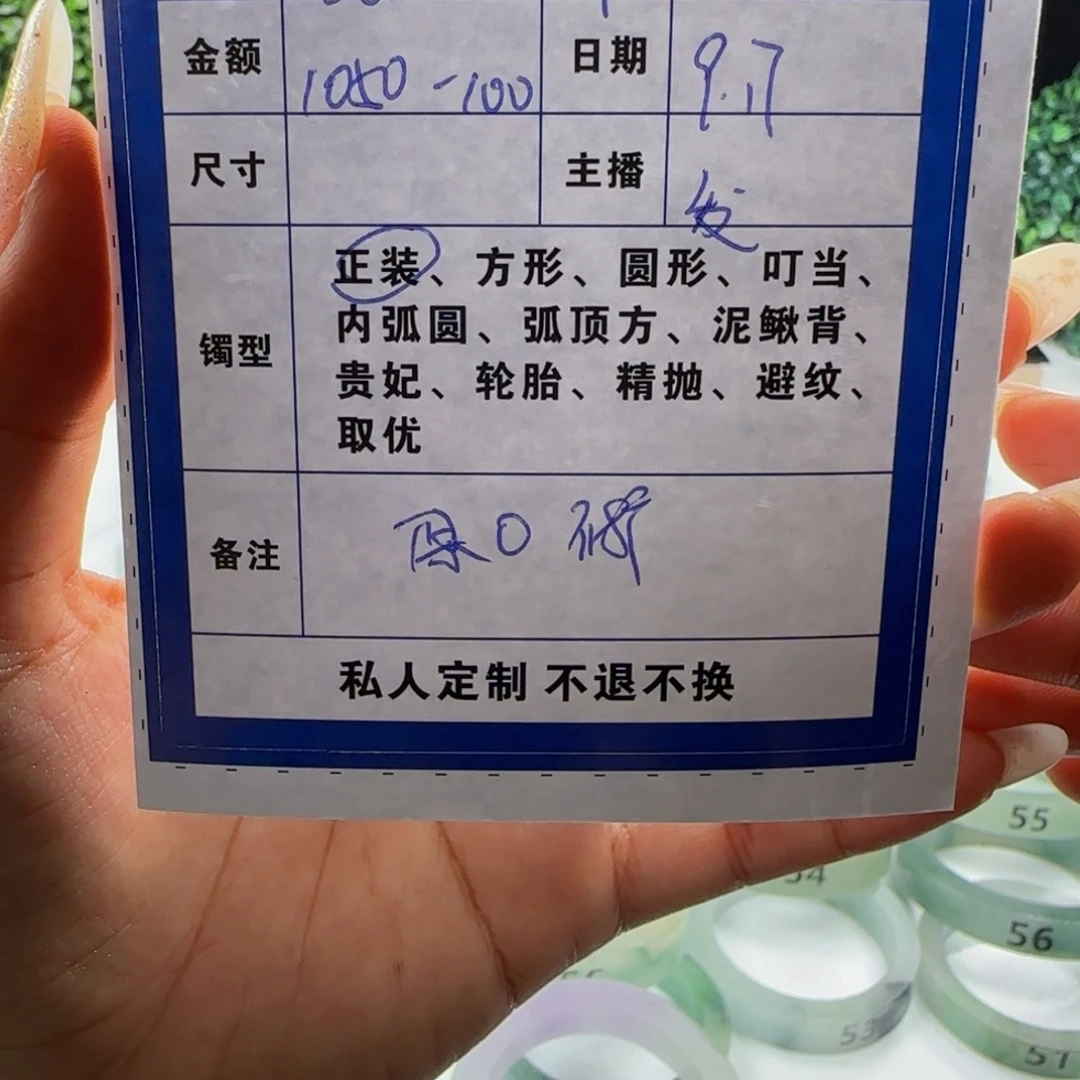 金额 1050 -100 日期 9.17
尺寸 主播 发
正装、方形、圆形、叮当、
内弧圆、弧顶方、泥鳅背、
镯型
贵妃、轮胎、精抛、避纹、
取优
备注 保0
私人定制 不退不换
55
54
56
53
57